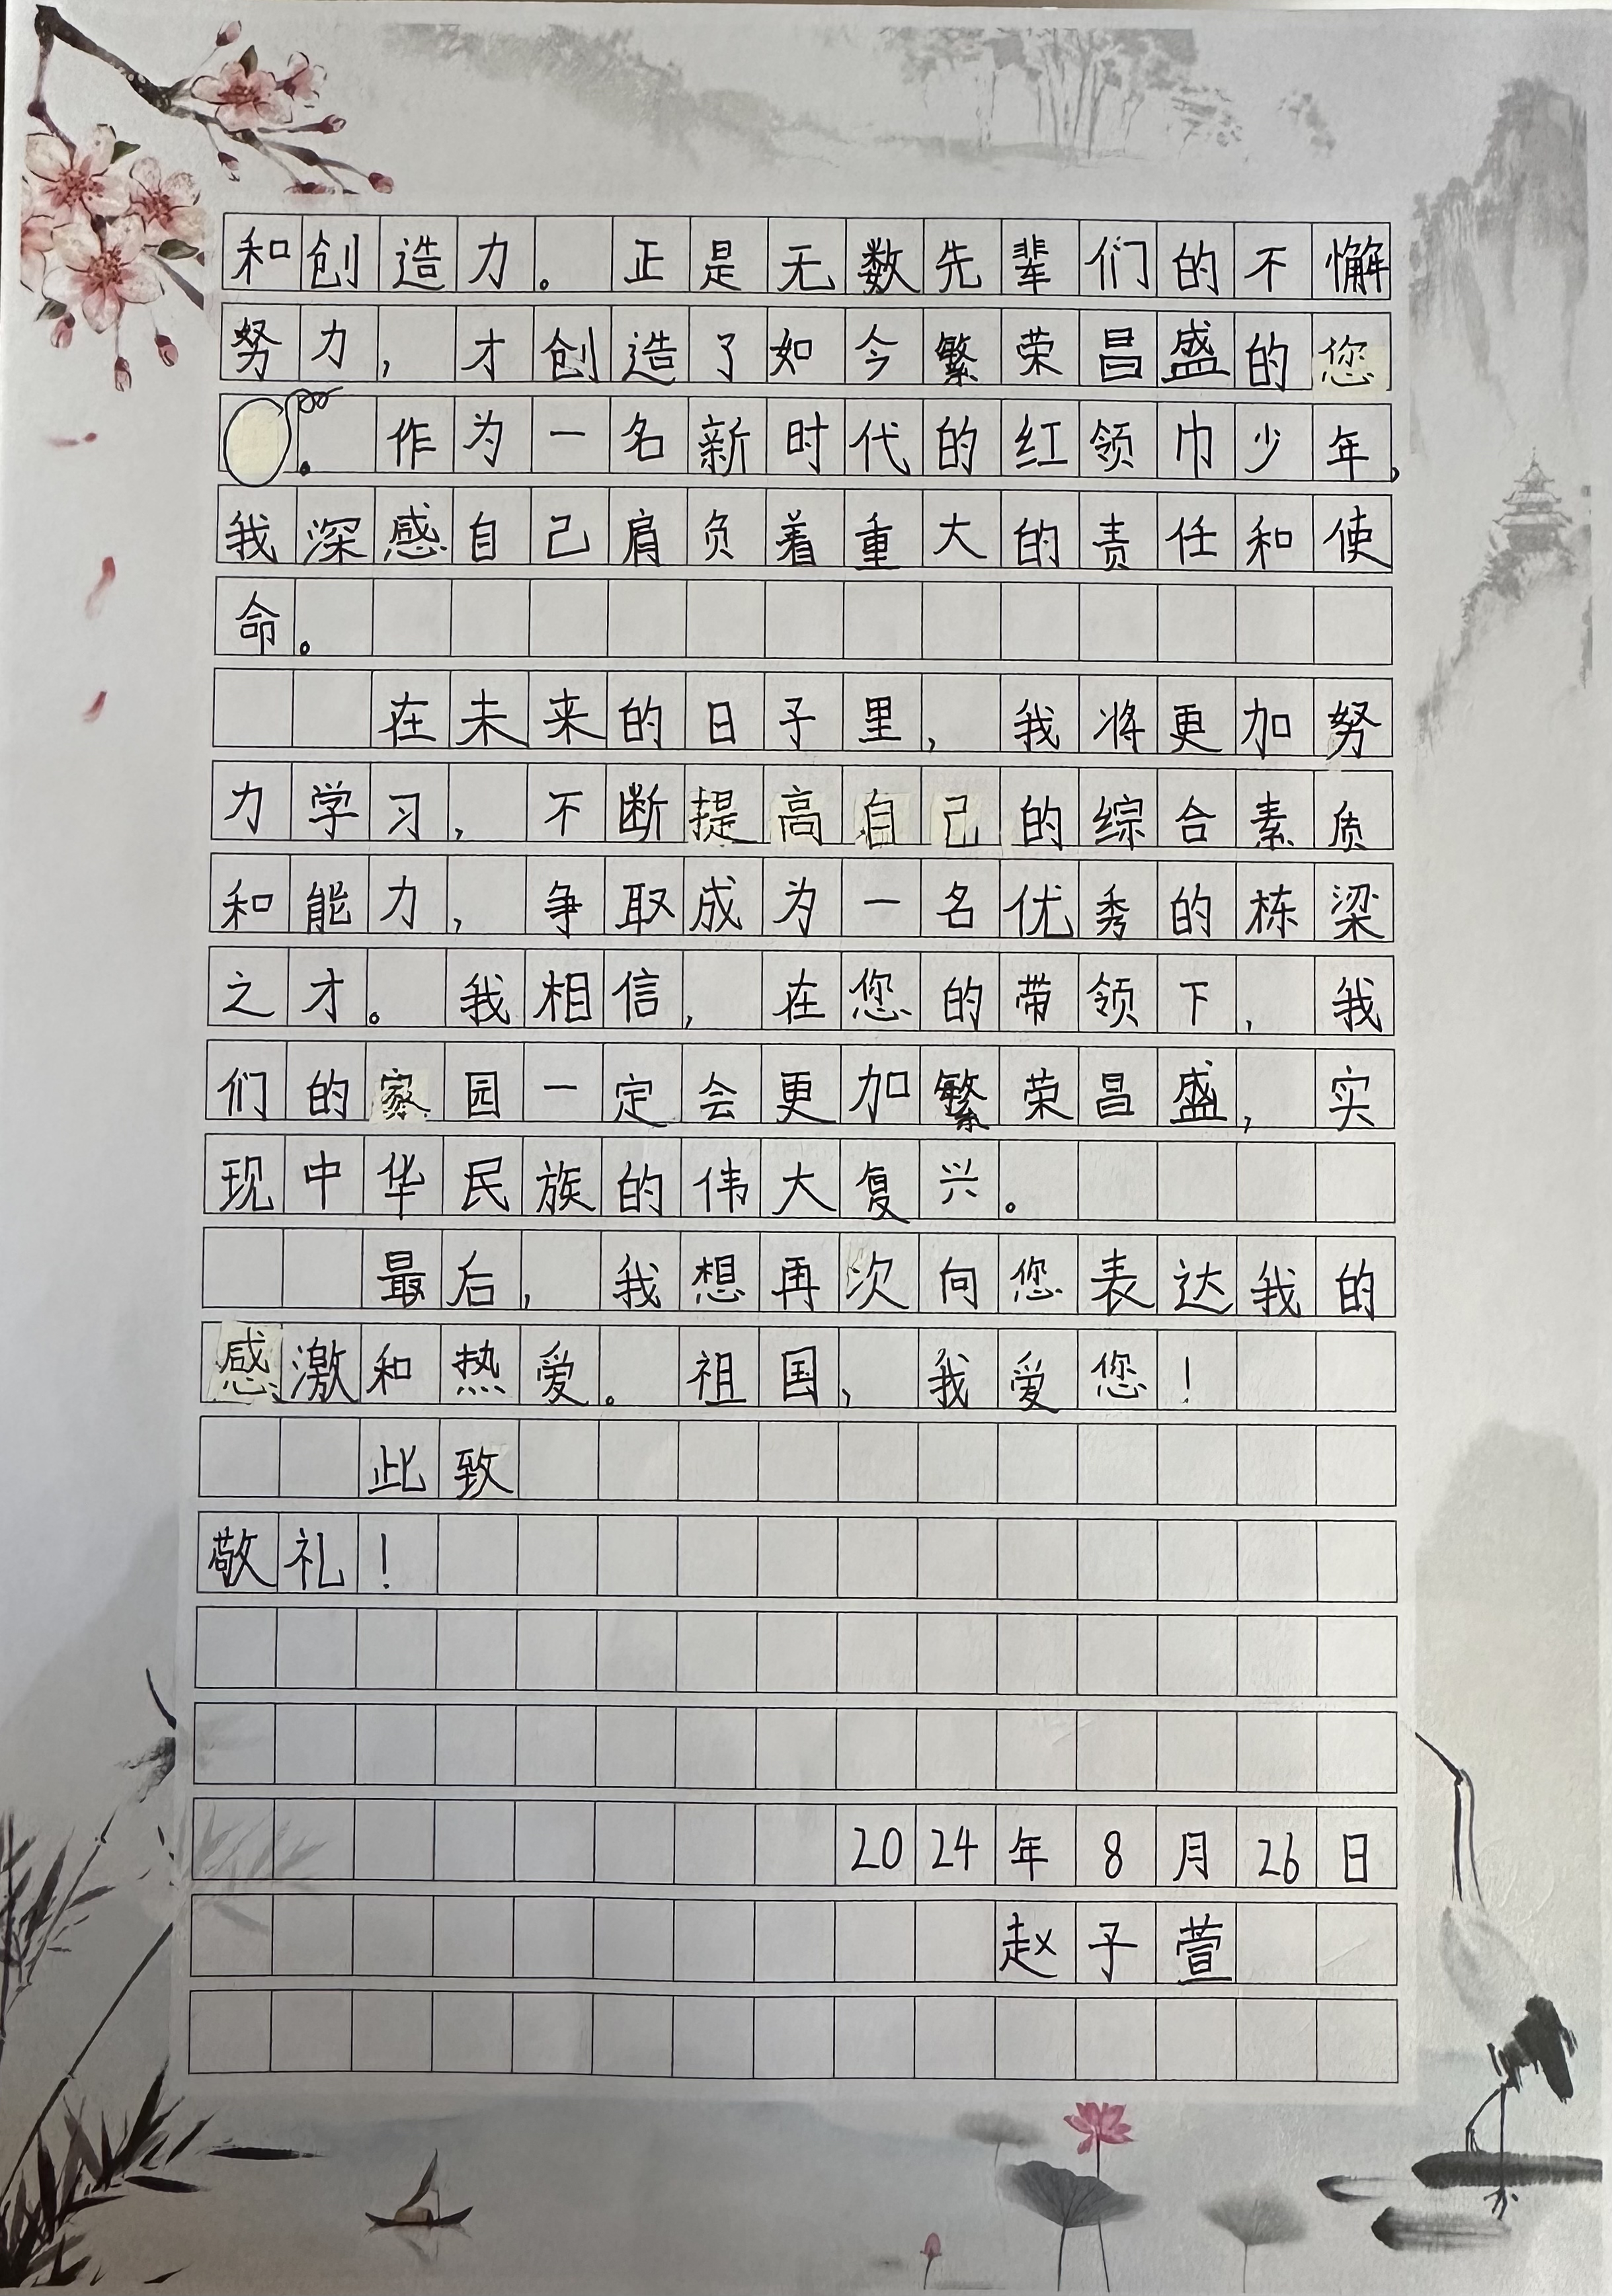 和创造力。正是无数先辈们的不懈
努力，才创造了如今繁荣昌盛的您
。作为一名新时代的红领巾少年，
我深感自己肩负着重大的责任和使
命。
在未来的日子里，我将更加努
力学习，不断提高自己的综合素质
和能力，争取成为一名优秀的栋梁
之才。我相信，在您的带领下，我
们的家园一定会更加繁荣昌盛，实
现中华民族的伟大复兴。
最后，我想再次向您表达我的
感激和热爱。祖国，我爱您！
此致
敬礼！
2024年8月26日
赵子萱